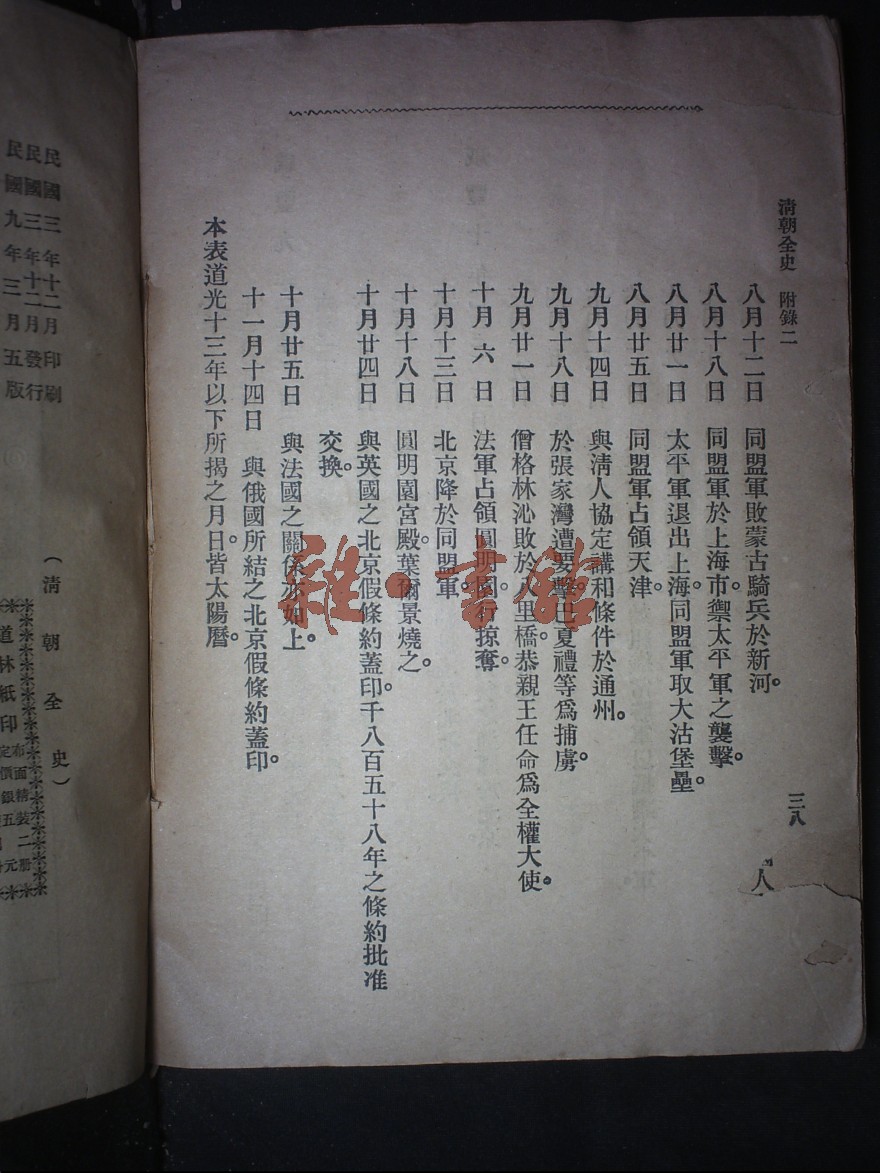 清朝全史　附錄二
三八
八月十二日　同盟軍敗蒙古騎兵於新河。
八月十八日　同盟軍於上海市禦太平軍之襲擊。
八月廿一日　太平軍退出上海。同盟軍取大沽堡壘。
八月廿五日　同盟軍占領天津。
九月十四日　與淸人協定講和條件於通州。
九月十八日　於張家灣遭要擊。巴夏禮等爲捕虜。
九月廿一日　僧格林沁敗於八里橋。恭親王任命爲全權大使。
十月六日　法軍占領圓明園。行掠奪。
十月十三日　北京降於同盟軍。
十月十八日　圓明園宮殿。葉爾景燒之。
十月廿四日　與英國之北京假條約蓋印。千八百五十八年之條約批准
交換。
十月廿五日　與法國之關係亦如上。
十一月十四日　與俄國所結之北京假條約蓋印。
本表道光十三年以下所揭之月日。皆太陽曆。
民國三年十二月印刷
民國三年十二月發行
民國九年三月五版
（淸朝全史）
道林紙印
布面精裝二册
雜·書館